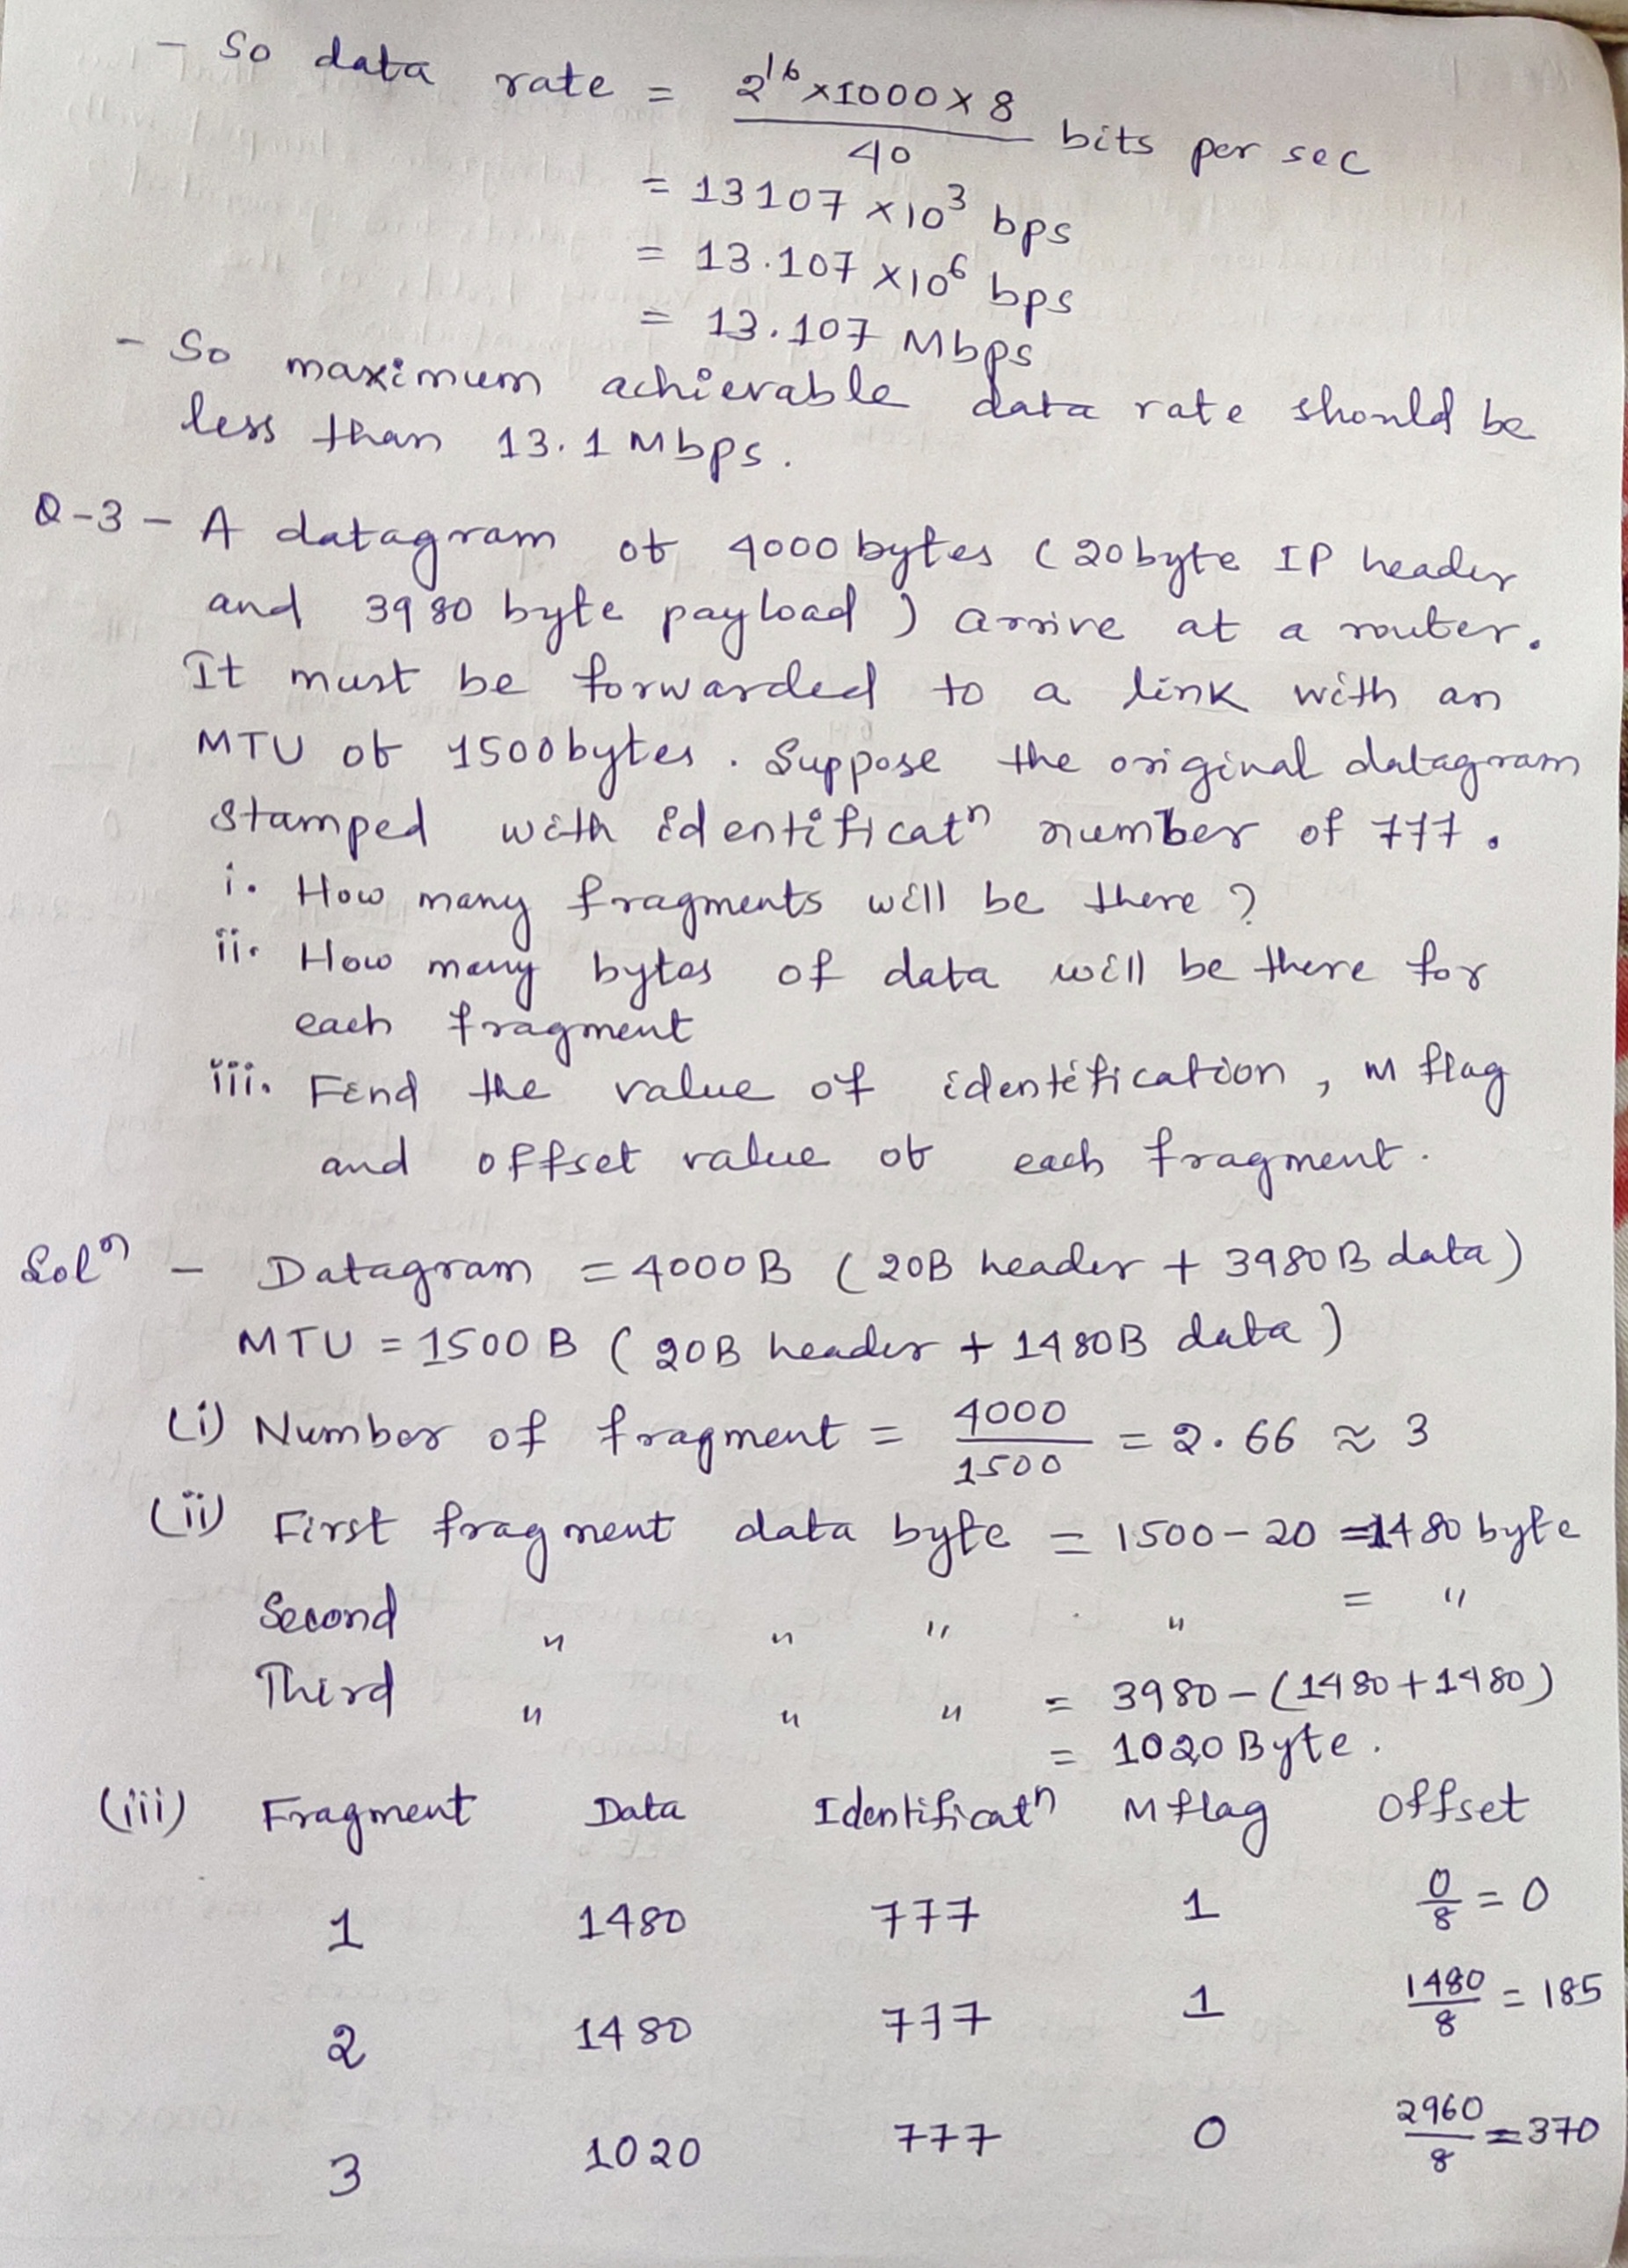 - So data rate = 2^16 × 1000 × 8 / 40 bits per sec
= 13107 × 10^3 bps
= 13.107 × 10^6 bps
= 13.107 Mbps
- So maximum achievable data rate should be
less than 13.1 Mbps.
Q-3 - A datagram of 4000 bytes ( 20 byte IP header
and 3980 byte payload ) arrive at a router.
It must be forwarded to a link with an
MTU of 1500 bytes. Suppose the original datagram
stamped with identificatⁿ number of 777.
i. How many fragments will be there ?
ii. How many bytes of data will be there for
each fragment
iii. Find the value of identification, M flag
and offset value of each fragment.
Solⁿ - Datagram = 4000B ( 20B header + 3980B data )
MTU = 1500 B ( 20B header + 1480B data )
(i) Number of fragment = 4000 / 1500 = 2.66 ≈ 3
(ii) First fragment data byte = 1500 - 20 = 1480 byte
Second " " " " = "
Third " " " = 3980 - (1480 + 1480)
= 1020 Byte.
(iii) Fragment Data Identificatⁿ M flag Offset
1 1480 777 1 0/8 = 0
2 1480 777 1 1480/8 = 185
3 1020 777 0 2960/8 = 370